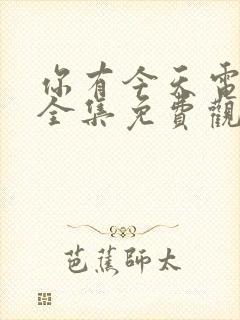 你有今天電
全集免費觀
芭蕉師太